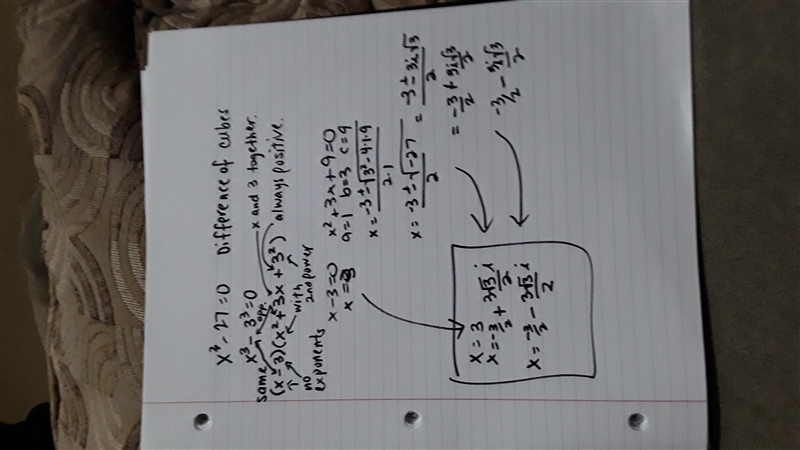 x³ - 27 = 0 Difference of cubes
x³ - 3³ = 0
same opp. x and 3 together.
(x - 3)(x² + 3x + 3²) always positive.
no exponents
with 2nd power
x - 3 = 0
x = 3
x² + 3x + 9 = 0
a = 1 b = 3 c = 9
x = -3 ± √3² - 4·1·9 / 2·1
x = -3 ± √-27 / 2 = -3 ± 3i√3 / 2
= -3/2 + 3i√3/2
-3/2 - 3i√3/2
x = 3
x = -3/2 + 3√3/2 i
x = -3/2 - 3√3/2 i